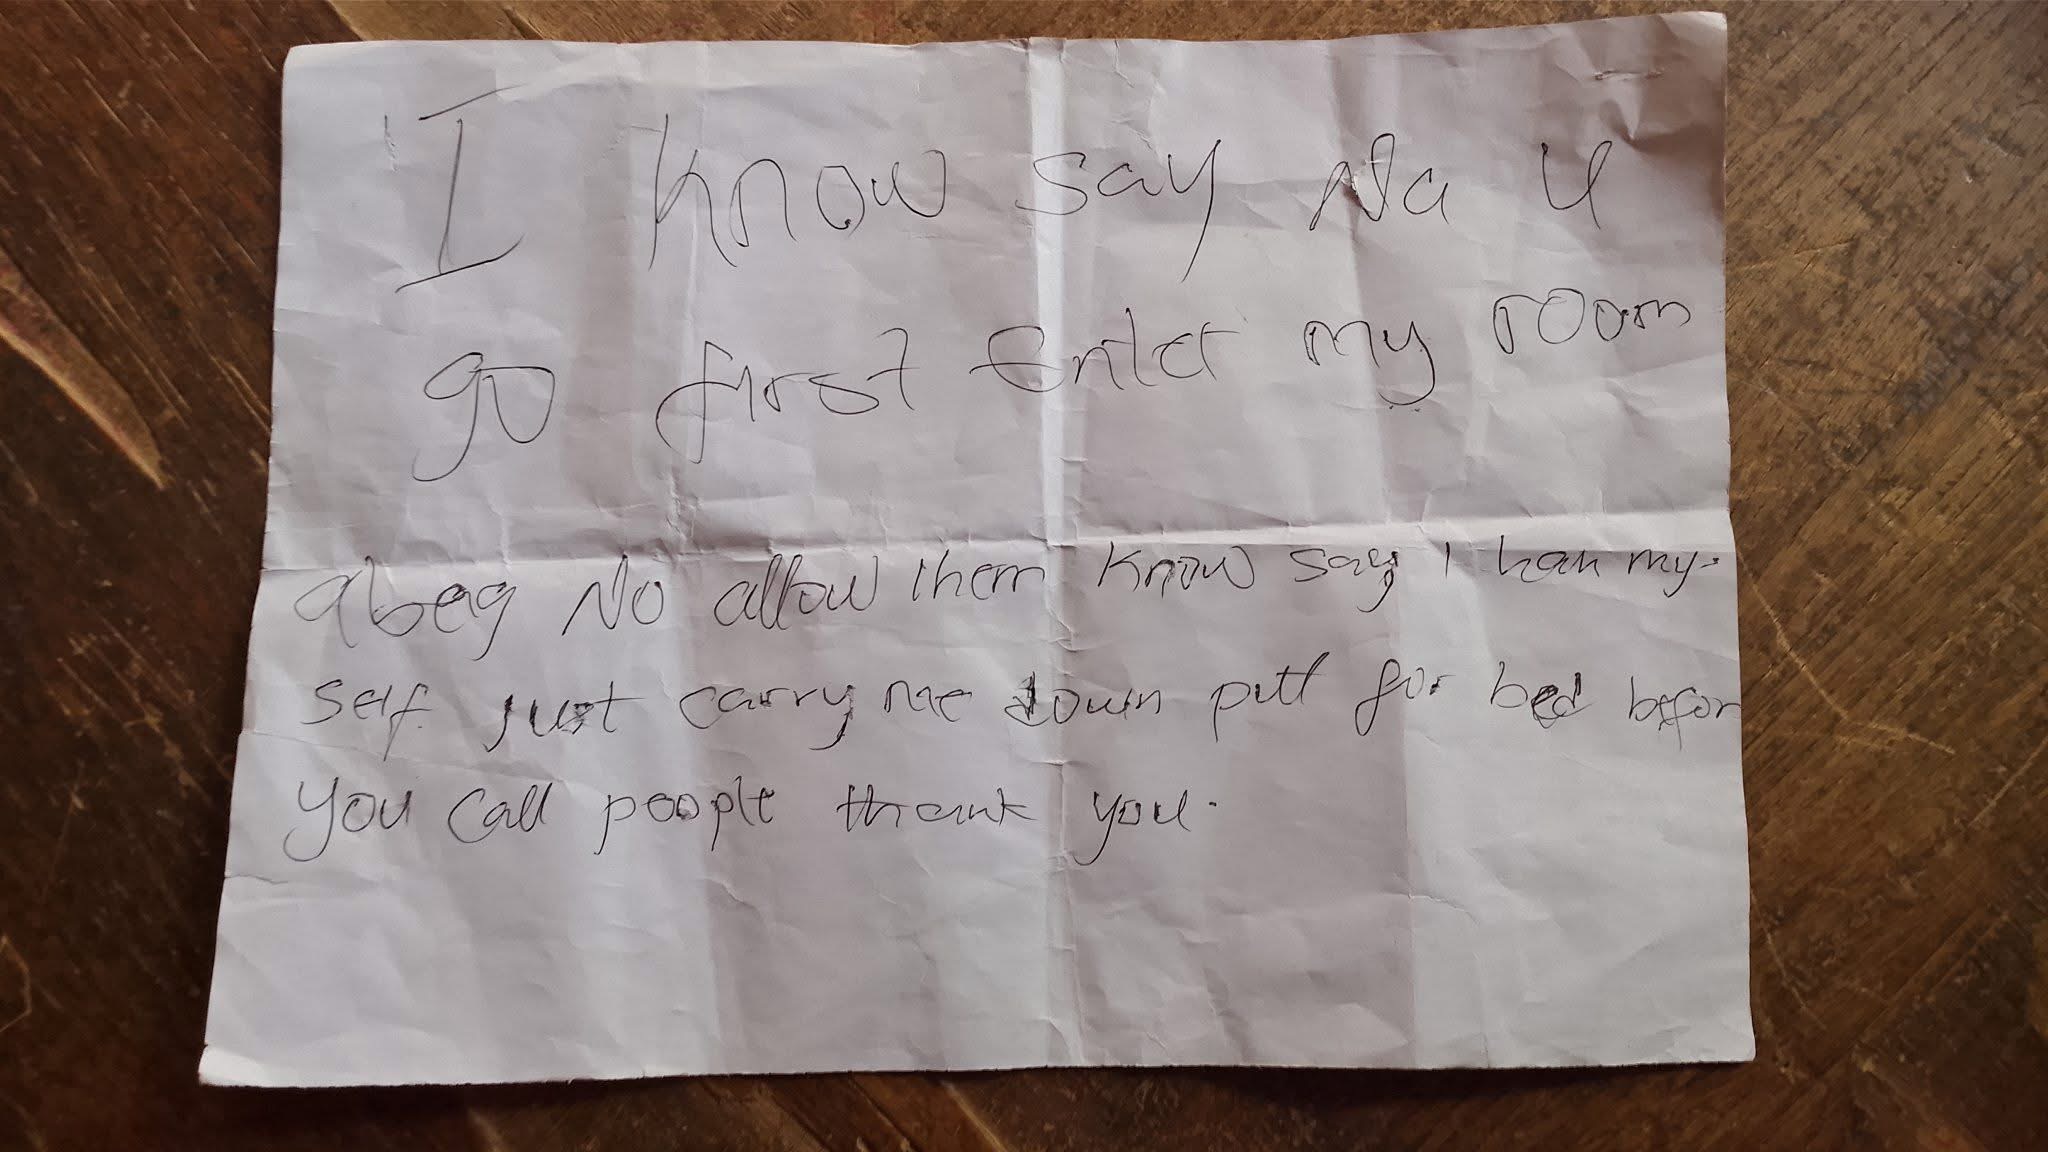 I know say Na U
go first Enter my room
abeg No allow them know say I han my-
self. just carry me down putt for bed befor
you call people thank you.